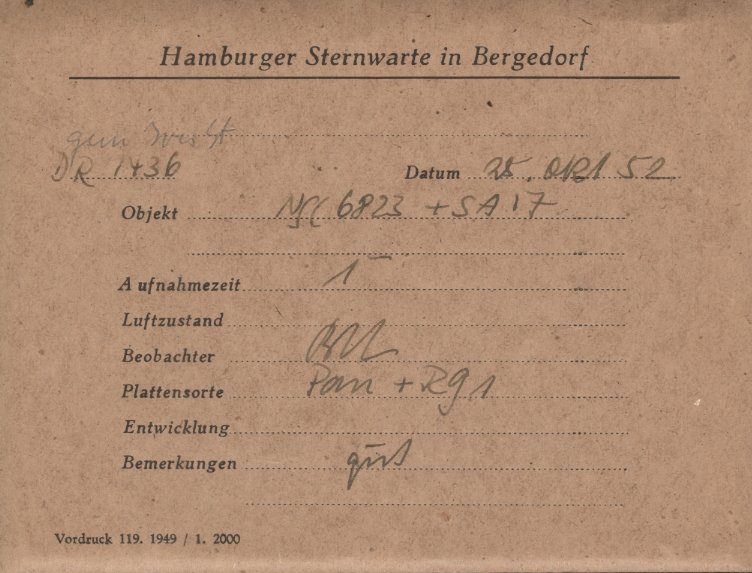 Hamburger Sternwarte in Bergedorf
DR 1436
Datum 25. Okt 52
Objekt NGC 6823 + SA 17
Aufnahmezeit 1
Luftzustand
Beobachter
Plattensorte Pan + Rg 1
Entwicklung
Bemerkungen gut
Vordruck 119. 1949 / 1. 2000